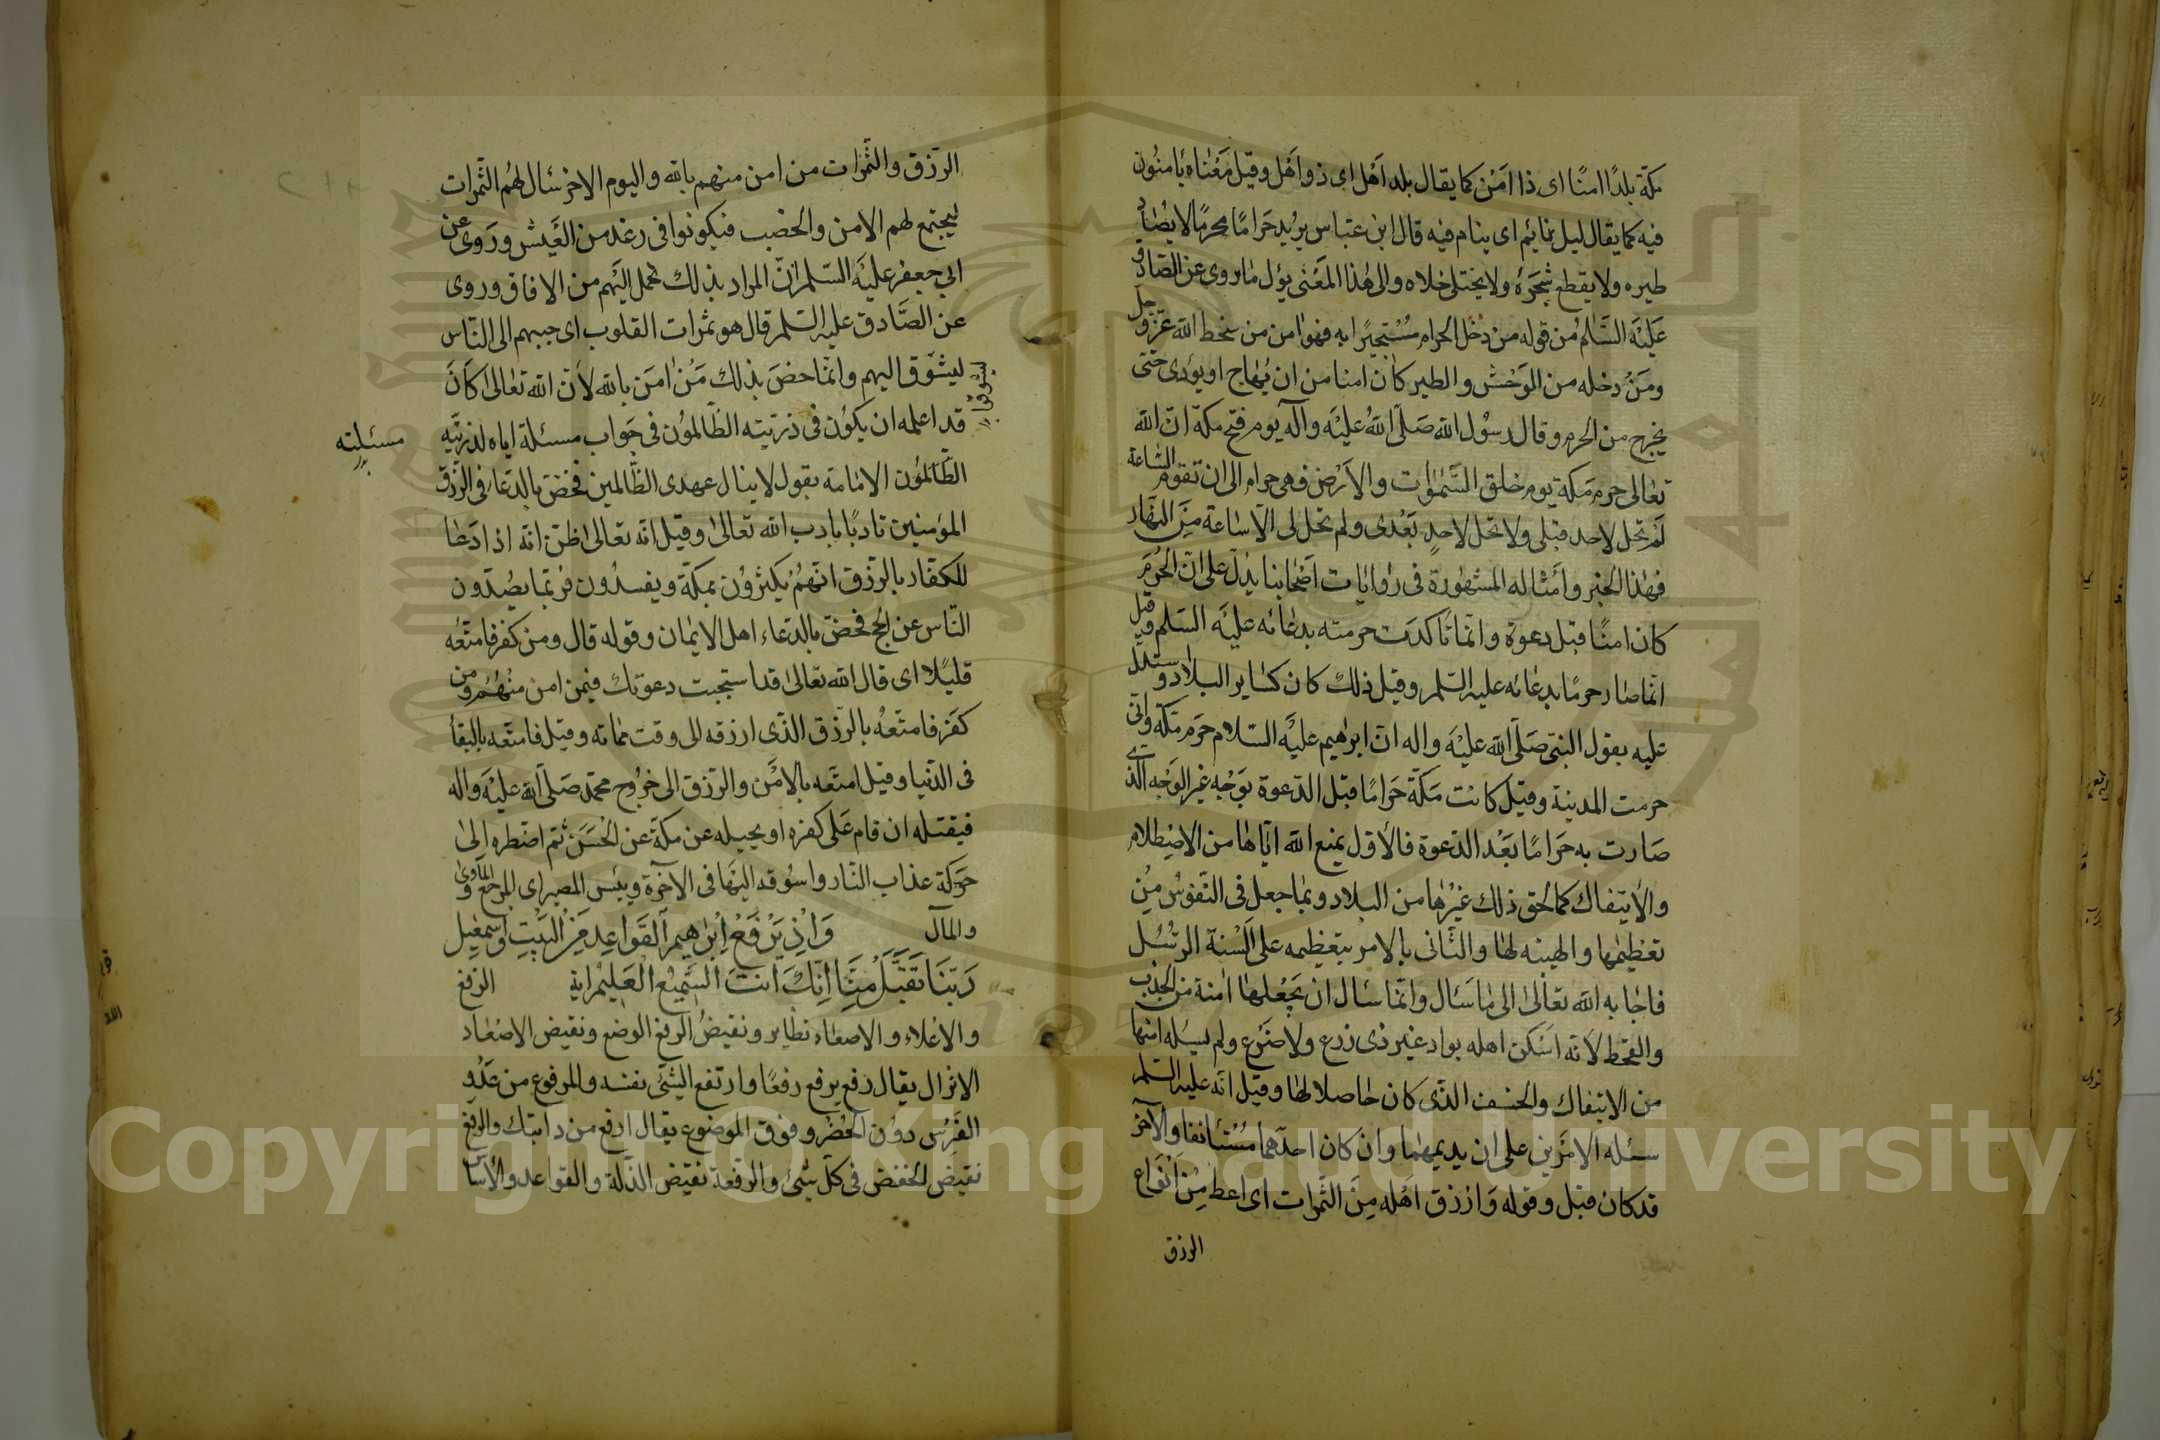 مكّة بلدًا امنًا اى ذا امن كما يقال بلد اهل اى ذو اهل وقيل معناه يأمنون
فيه كما يقال ليل نايم اى ينام فيه قال ابن عباس يريد حرامًا محرمًا لا يصاد
طيره ولا يقطع شجره ولا يختلى خلاه والى هذا المعنى يؤل ما روى عن الصادق
عليه السّلم من قوله من دخل الحرام مستجيرًا به فهو امن من سخط الله عزّ وجل
ومن دخله من الوحش والطير كان امنا من ان يهاج او يؤذى حتى
يخرج من الحرم وقال رسول الله صلّى الله عليه وآله يوم فتح مكة انّ الله
تعالى حرم مكة يوم خلق السّموات والارض فهى حرام الى ان تقوم الساعة
لم تحل لاحد قبلى ولا تحل لاحدٍ بعدى ولم تحل لى الّا ساعة من النهار
فهذا الخبر وامثاله المشهورة فى روايات اصحابنا يدلّ على انّ الحرم
كان امنًا قبل دعوة وانّما تاكدت حرمته بدعائه عليه السّلم وقيل
انّما صار حرمًا بدعائه عليه السّلم وقيل ذلك كان كساير البلاد وستدل
عليه بقول النبى صلّى الله عليه واله انّ ابرهيم عليه السّلام حرم مكّة وانّى
حرمت المدينة وقيل كانت مكّة حرامًا قبل الدّعوة بوجه غير الوجه الذى
صارت به حرامًا بعد الدّعوة فالاول بمنع الله ايّاها من الاصطلام
والايتفاك كما لحق ذلك غيرها من البلاد وبما جعل فى النّفوس من
تعظيمها والهيبه لها والثّانى بالامر بتعظيمه على السنة الرّسل
فاجابه الله تعالى الى ما سأل وانّما سأل ان يجعلها امنة من الجدب
والقحط لانّه اسكن اهله بواد غير ذى زرع ولا ضرع ولم يسئله امنها
من الايتفاك والخسف الذى كان حاصلا لها وقيل انّه عليه السّلم
سئله الامرين على ان يديمهما وان كان احدهما مستانفا والاخر
قد كان قبل وقوله وارزق اهله من الثّمرات اى اعط من انواع
الرزق
الرّزق والثّمرات من امن منهم بالله واليوم الاخر سال لهم الثّمرات
ليجتمع لهم الامن والخصب فيكونوا فى رغد من العيش وروى عن
ابى جعفر عليه السّلم انّ المراد بذلك تحمل اليهم من الافاق وروى
عن الصّادق عليه السّلم قال هو ثمرات القلوب اى حبهم الى النّاس
ليشوّق اليهم وانّما خصّ بذلك من امن بالله لانّ الله تعالى كان
قد اعلمه ان يكون فى ذريته الظّالمون فى جواب مسئلة اياه لذريّته
مسئلته
الظّالمون الامامة بقول لا ينال عهدى الظّالمين فخص بالدّعاء فى الرّزق
المؤمنين تادبًا بادب الله تعالى وقيل انّه تعالى اظن انّه اذا دعا
للكفار بالرّزق انّهم يكثرون بمكة ويفسدون فربّما يصدّون
النّاس عن الحج فخص بالدعاء اهل الايمان وقوله قال ومن كفر فامتعه
قليلًا اى قال الله تعالى قد استجبت دعوتك فيمن امن منهم ومن
كفر فامتعه بالرّزق الذى ارزقه الى وقت مماته وقيل فامتعه بالبقأ
فى الدّنيا وقيل امتعه بالامن والرّزق الى خروج محمّد صلّى الله عليه واله
فيقتله ان قام على كفره او يجيله عن مكة عن الحسن ثم اضطره الى
حركة عذاب النّار واسوقه اليها فى الآخرة وبئس المصير اى المرجع والمأوى
والمآل وَاِذْ يَرْفَعُ اِبْرٰهيمُ الْقَوَاعِدَ مِنَ الْبَيْتِ وَاِسْمٰعِيلُ
رَبَّنَا تَقَبَّلْ مِنَّا اِنَّكَ اَنْتَ السَّمِيعُ الْعَلِيمُ اية الرّفع
والاعلاء والاصعاد نظاير ونقيض الرفع الوضع ونقيض الاصعاد
الانزال يقال رفع يرفع رفعًا وارتفع الشئ نفسه والمرفوع من عدو
الفرس دون الحضر وفوق الموضوع يقال ارفع من دابتك والرفع
نقيض الخفض فى كل شئ والرّفعة نقيض الذّلة والقواعد والاساس
Copyright © King Saud University